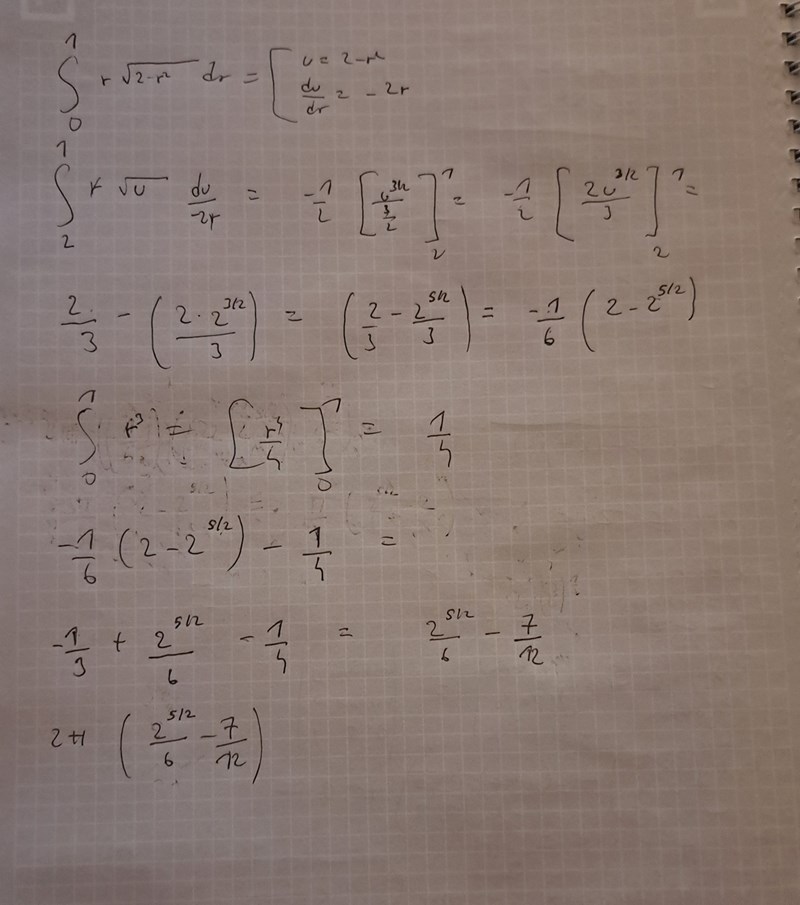 ∫₀¹ r √(2-r²) dr = [ u = 2-r²
du/dr = -2r
∫₂¹ r √u du/-2r = -1/2 [u^(3/2)/(3/2)]₂¹ = -1/2 [2u^(3/2)/3]₂¹ =
2/3 - (2·2^(3/2)/3) = (2/3 - 2^(5/2)/3) = -1/6 (2 - 2^(5/2))
∫₀¹ r³ = [r⁴/4]₀¹ = 1/4
-1/6 (2 - 2^(5/2)) - 1/4 =
-1/3 + 2^(5/2)/6 - 1/4 = 2^(5/2)/6 - 7/12
2π (2^(5/2)/6 - 7/12)